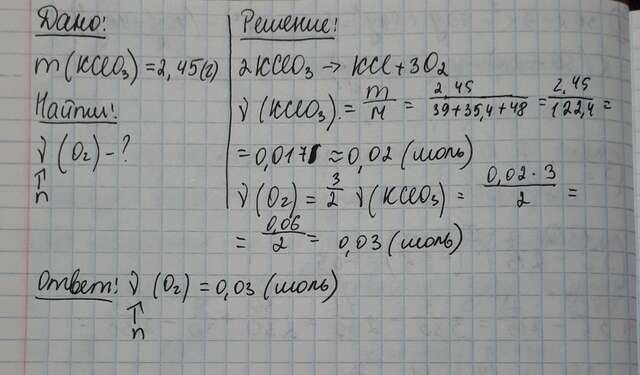 Дано:
m(KClO₃)=2,45(г)
Найти:
ν(O₂)-?
↑
n
Решение:
2KClO₃→KCl+3O₂
ν(KClO₃)=m/M=2,45/39+35,4+48=2,45/122,4=
=0,017≈0,02(моль)
ν(O₂)=3/2 ν(KClO₃)=0,02·3/2=
=0,06/2=0,03(моль)
Ответ: ν(O₂)=0,03(моль)
↑
n